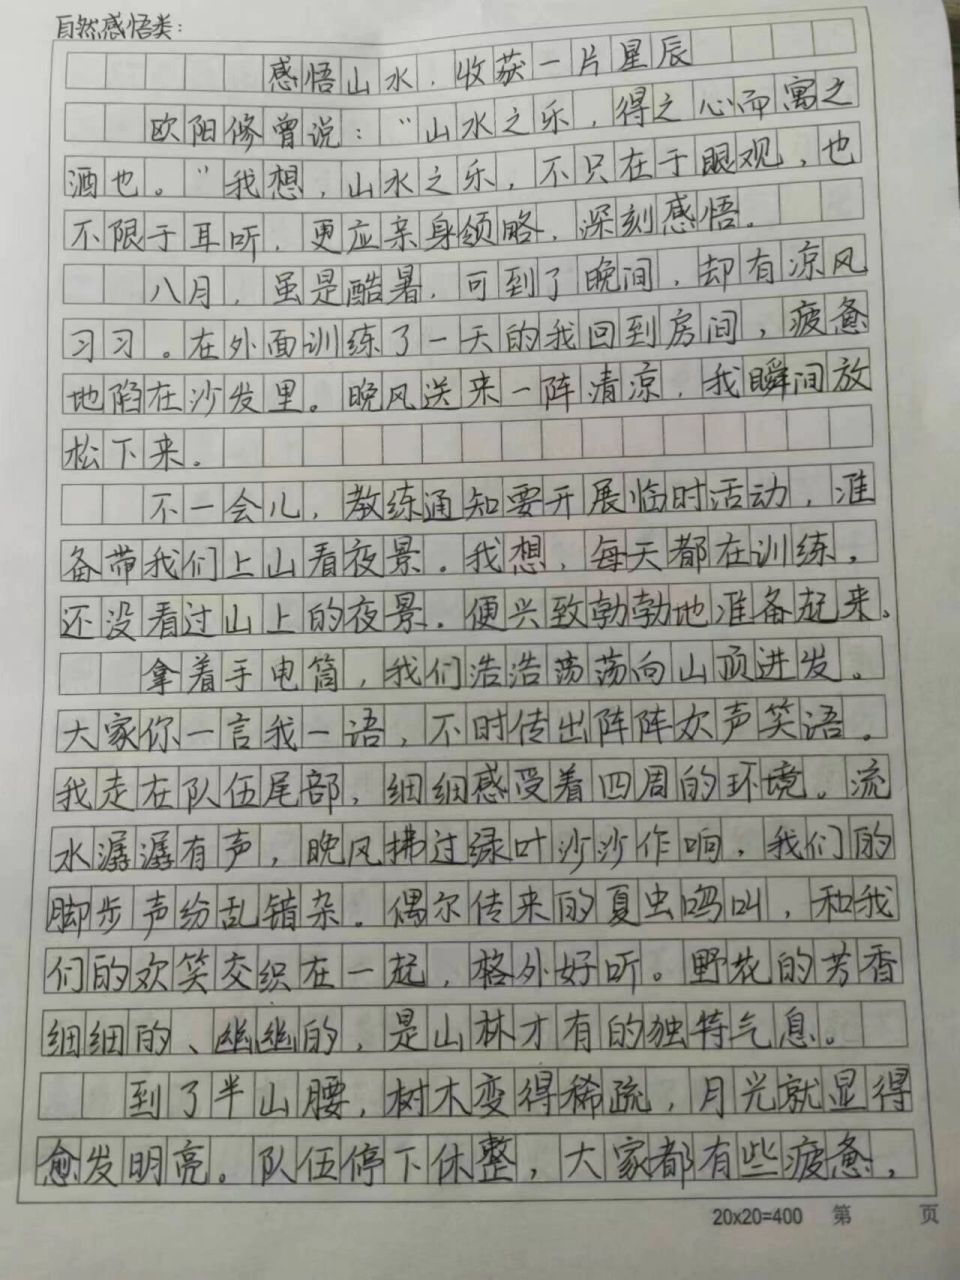 自然感悟类:
感悟山水,收获一片星辰
欧阳修曾说:"山水之乐,得之心而寓之
酒也。"我想,山水之乐,不只在于眼观,也
不限于耳听,更应亲身领略,深刻感悟。
八月,虽是酷暑,可到了晚间,却有凉风
习习。在外面训练了一天的我回到房间,疲惫
地陷在沙发里。晚风送来一阵清凉,我瞬间放
松下来。
不一会儿,教练通知要开展临时活动,准
备带我们上山看夜景。我想,每天都在训练,
还没看过山上的夜景。便兴致勃勃地准备起来。
拿着手电筒,我们浩浩荡荡向山顶进发。
大家你一言我一语,不时传出阵阵欢声笑语。
我走在队伍尾部,细细感受着四周的环境。流
水潺潺有声,晚风拂过绿叶沙沙作响,我们的
脚步声纷乱错杂。偶尔传来的夏虫鸣叫,和我
们的欢笑交织在一起,格外好听。野花的芳香
细细的、幽幽的,是山林才有的独特气息。
到了半山腰,树木变得稀疏,月光就显得
愈发明亮。队伍停下休整,大家都有些疲惫,
20x20=400 第 页